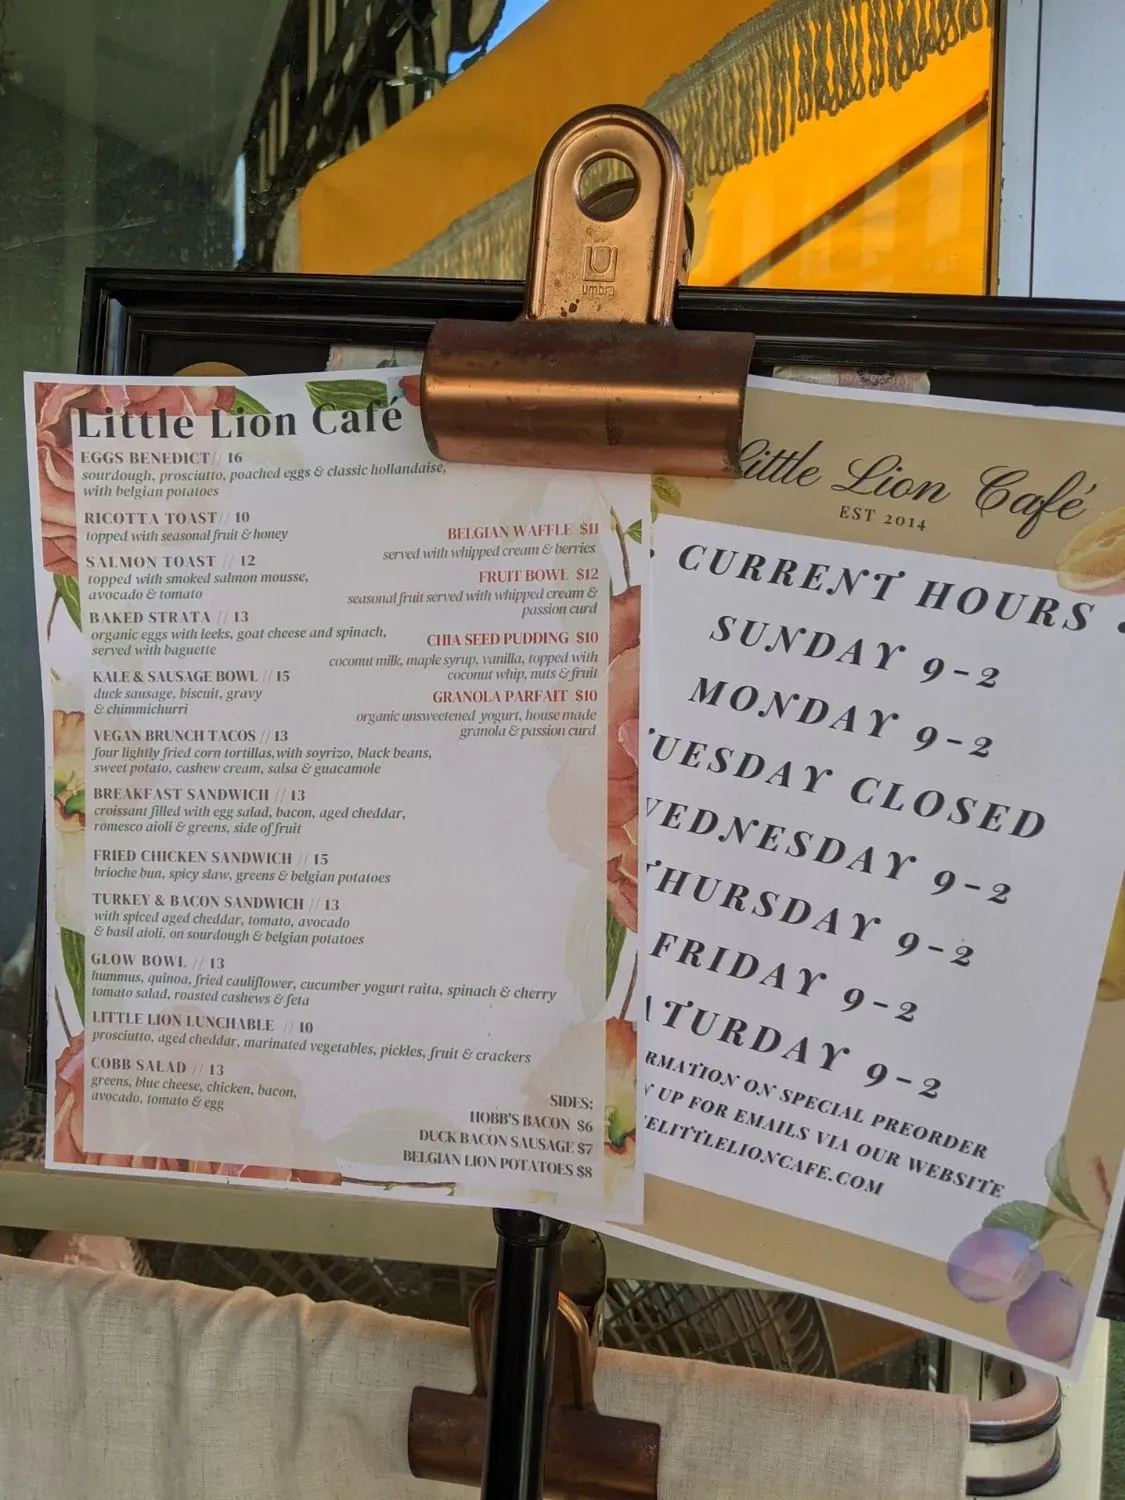 umbra
Little Lion Café
EGGS BENEDICT// 16
sourdough, prosciutto, poached eggs & classic hollandaise,
with belgian potatoes
RICOTTA TOAST// 10
topped with seasonal fruit & honey
SALMON TOAST // 12
topped with smoked salmon mousse,
avocado & tomato
BAKED STRATA // 13
organic eggs with leeks, goat cheese and spinach,
served with baguette
KALE & SAUSAGE BOWL // 15
duck sausage, biscuit, gravy
& chimmichurri
VEGAN BRUNCH TACOS // 13
four lightly fried corn tortillas,with soyrizo, black beans,
sweet potato, cashew cream, salsa & guacamole
BREAKFAST SANDWICH // 13
croissant filled with egg salad, bacon, aged cheddar,
romesco aioli & greens, side of fruit
FRIED CHICKEN SANDWICH // 15
brioche bun, spicy slaw, greens & belgian potatoes
TURKEY & BACON SANDWICH // 13
with spiced aged cheddar, tomato, avocado
& basil aioli, on sourdough & belgian potatoes
GLOW BOWL // 13
hummus, quinoa, fried cauliflower, cucumber yogurt raita, spinach & cherry
tomato salad, roasted cashews & feta
LITTLE LION LUNCHABLE // 10
prosciutto, aged cheddar, marinated vegetables, pickles, fruit & crackers
COBB SALAD // 13
greens, blue cheese, chicken, bacon,
avocado, tomato & egg
BELGIAN WAFFLE $11
served with whipped cream & berries
FRUIT BOWL $12
seasonal fruit served with whipped cream &
passion curd
CHIA SEED PUDDING $10
coconut milk, maple syrup, vanilla, topped with
coconut whip, nuts & fruit
GRANOLA PARFAIT $10
organic unsweetened yogurt, house made
granola & passion curd
SIDES:
HOBB'S BACON $6
DUCK BACON SAUSAGE $7
BELGIAN LION POTATOES $8
Little Lion Café
EST 2014
CURRENT HOURS
SUNDAY 9-2
MONDAY 9-2
TUESDAY CLOSED
WEDNESDAY 9-2
THURSDAY 9-2
FRIDAY 9-2
ATURDAY 9-2
RMATION ON SPECIAL PREORDER
UP FOR EMAILS VIA OUR WEBSITE
ELITTLELIONCAFE.COM